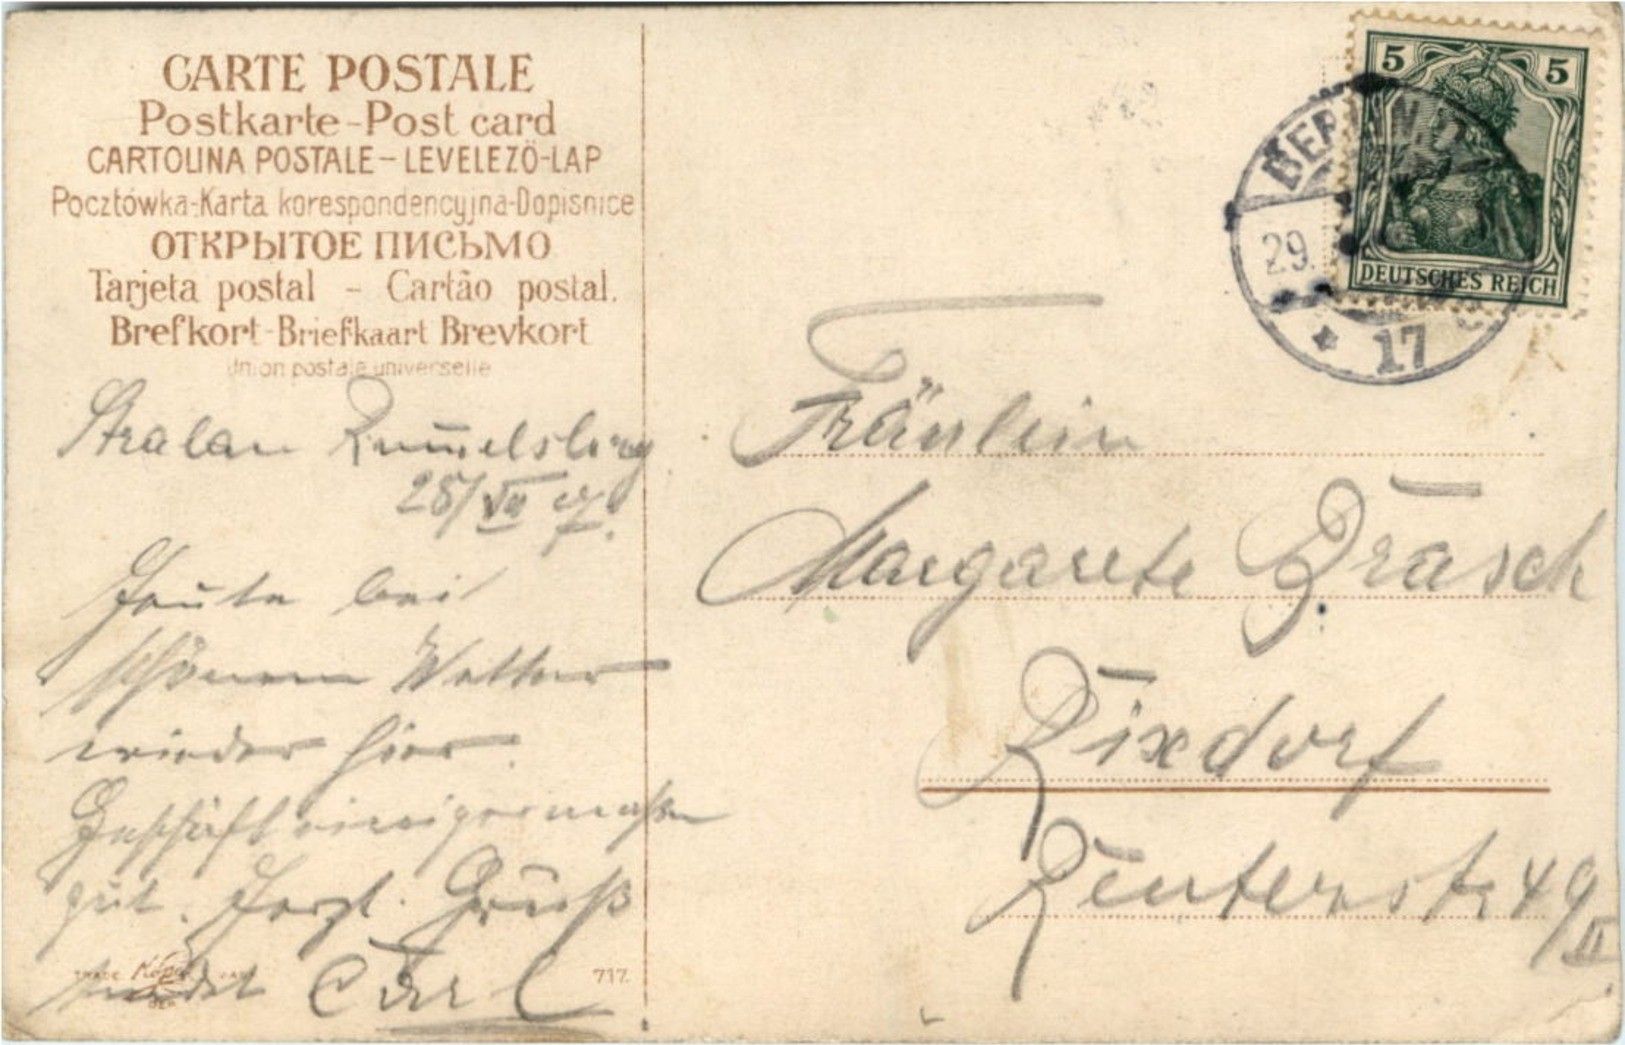 CARTE POSTALE
Postkarte-Post card
CARTOLINA POSTALE-LEVELEZÖ-LAP
Pocztówka-Karta korespondencyjna-Dopisnice
ОТКРЫТОЕ ПИСЬМО
Tarjeta postal - Cartão postal.
Brefkort-Briefkaart Brevkort
Union postale universelle
Stralau Rummelsburg
28/VII 07.
Heute bei
schönem Wetter
wieder hier.
Geschäft einigermaßen
gut. Herzl. Gruß
sendet Carl
TRADE
717.
5 5
DEUTSCHES REICH
BERLIN
29.
* 17
Fräulein
Margarete Dräsch
Rixdorf
Reuterstr 49 II